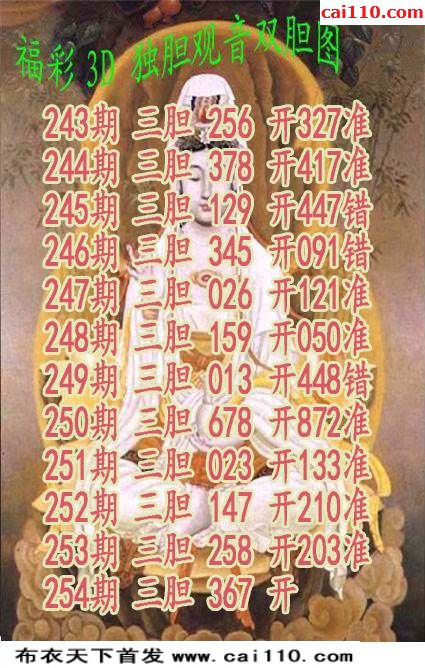 cai110.com
福彩3D 独胆观音双胆图
243期 三胆 256 开327准
244期 三胆 378 开417准
245期 三胆 129 开447错
246期 三胆 345 开091错
247期 三胆 026 开121准
248期 三胆 159 开050准
249期 三胆 013 开448错
250期 三胆 678 开872准
251期 三胆 023 开133准
252期 三胆 147 开210准
253期 三胆 258 开203准
254期 三胆 367 开
布衣天下首发 www.cai110.com